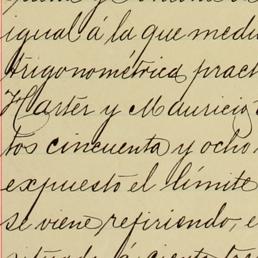 igual á la que medi
trigonométrica pract
Harter y Mauricio
tos cincuenta y ocho
expuesto el límite
se viene refiriendo, e
situado á ciento